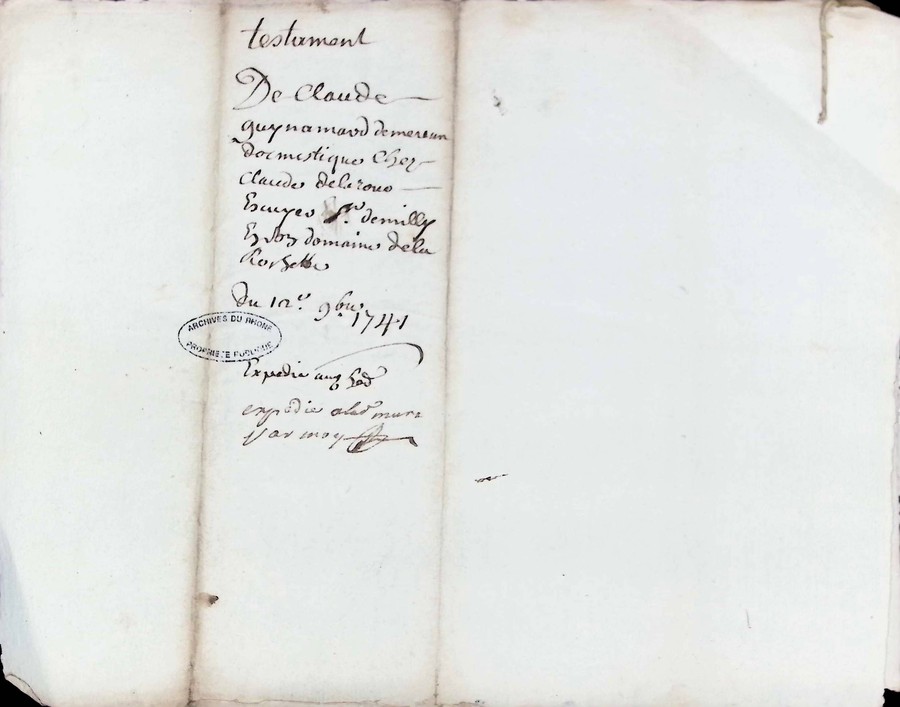 testament
De Claude
guynamard demeran
domestique Chez
Claude delaroue
Escuyer Sr. demilly
En son domaine dela
du 12e. 9bre 1741
ARCHIVES DU RHÔNE
PROPRIÉTÉ PUBLIQUE
Expedie aux
expedie
par moy